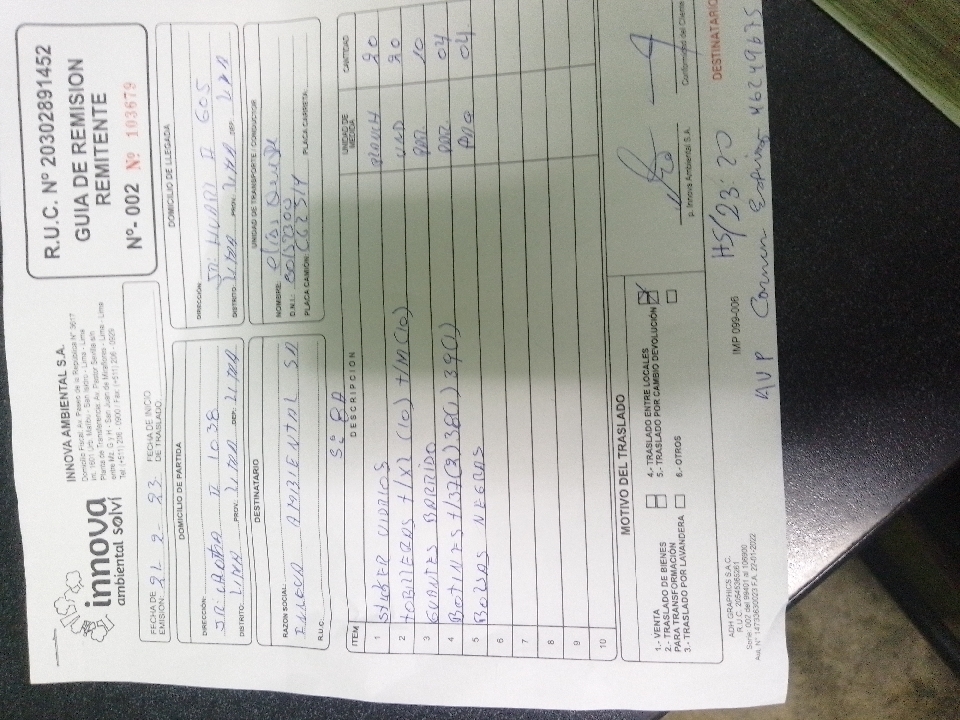 innova
ambiental solví
INNOVA AMBIENTAL S.A.
Domicilio Fiscal: Av. Paseo de la República N° 3617
Int. 1601 Urb. Malibu - San Isidro - Lima - Lima
Planta de Transferencia: Av. Pastor Sevilla s/n
entre Mz. G y H - San Juan de Miraflores - Lima - Lima
R.U.C. Nº 20302891452
GUIA DE REMISION
REMITENTE
Nº- 002 Nº 103679
FECHA DE EMISIÓN: 21- 2- 23
FECHA DE INICIO DE TRASLADO:
DOMICILIO DE PARTIDA
DIRECCIÓN: 1038
DISTRITO: LIMA PROV: LIMA DEP: LIMA
DOMICILIO DE LLEGADA
DIRECCIÓN: JR: HUARI # 605
DISTRITO: LIMA PROV: LIMA DEP: LIMA
DESTINATARIO
RAZON SOCIAL: INNOVA AMBIENTAL SA
R.U.C.
UNIDAD DE TRANSPORTE / CONDUCTOR
NOMBRE: Elias
D.N.I.:
PLACA CAMIÓN: PLACA CARRETA:
ITEM DESCRIPCION UNIDAD DE MEDIDA CANTIDAD
1 VIDRIOS 20
2 T/XL (10) T/M (10) UND 20
3 GUANTES BARRIDO PAR 10
4 BOTINES T/37(2) 38(1) 39(1) PAR. 04
5 BOLSAS NEGRAS PAQ 04
6
7
8
9
10
MOTIVO DEL TRASLADO
1.- VENTA
2.- TRASLADO DE BIENES PARA TRANSFORMACIÓN
3.- TRASLADO POR LAVANDERA
4.- TRASLADO ENTRE LOCALES
5.- TRASLADO POR CAMBIO DEVOLUCIÓN
6.- OTROS
p. Innova Ambiental S.A.
Conformidad del Cliente
ADH GRAPHICS S.A.C.
R.U.C. 20545365261
Serie: 0002 del 99401 al 106900
IMP 099-006
DESTINATARIO
HS/23:20
Carmen 46249675